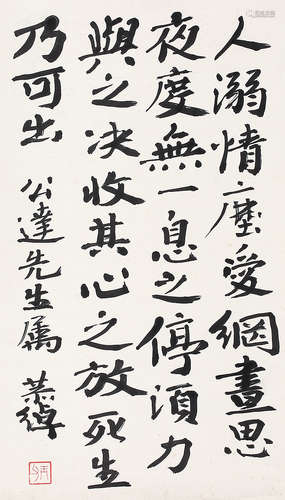 人溺情塵愛網晝思
夜度無一息之停須力
與之決收其心之放死生
乃可出
公達先生属
恭綽